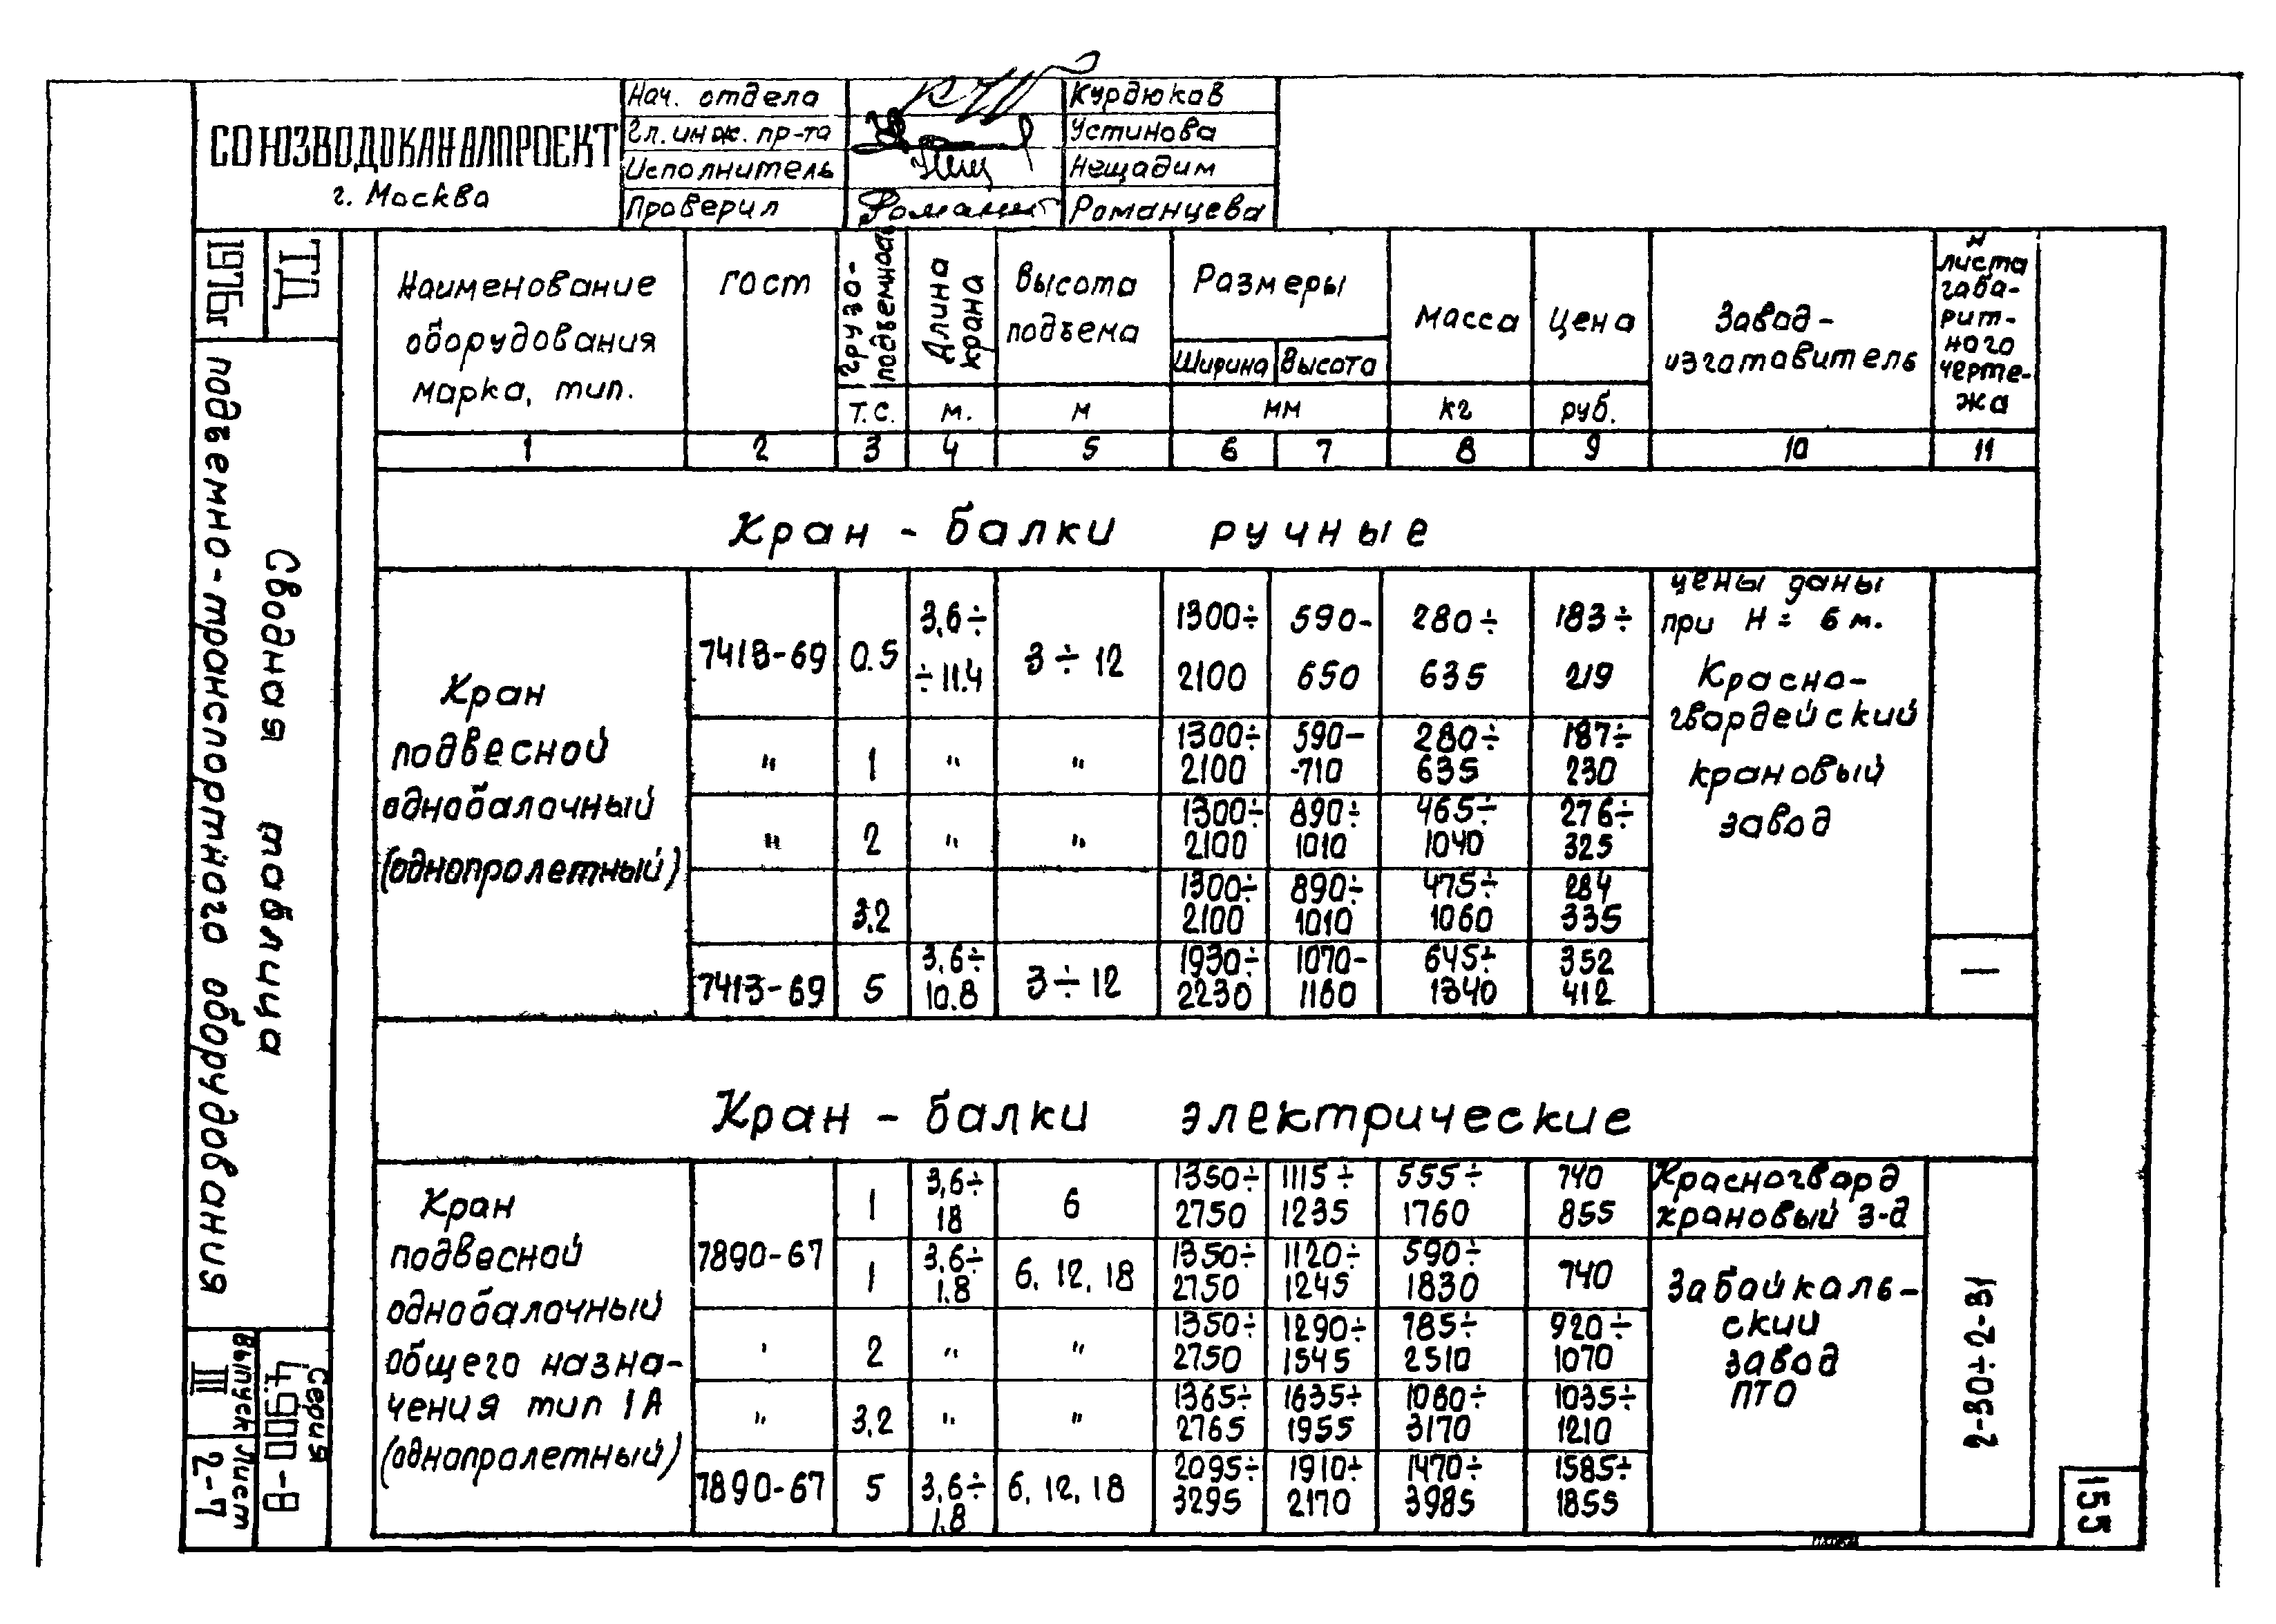 СОЮЗВОДОКАНАЛПРОЕКТ
г. Москва
Нач. отдела Курдюков
Гл. инж. пр-та Устинова
Исполнитель Нещадим
Проверил Романцева
ТД
1976г
Сводная таблица
подъемно-транспортного оборудования
Серия
4.900-8
Выпуск
III
Лист
2-7
Наименование
оборудования
марка, тип.
ГОСТ
Грузо-
подъемность
Т.С.
Длина
крана
м.
Высота
подъема
м
Размеры
Ширина Высота
мм
Масса
кг
Цена
руб.
Завод-
изготовитель
N
листа
габа-
рит-
ного
черте-
жа
1 2 3 4 5 6 7 8 9 10 11
Кран - балки ручные
Кран
подвесной
однобалочный
(однопролетный)
7413-69 0.5 3,6÷ ÷11.4 3÷12 1300÷ 2100 590- 650 280÷ 635 183÷ 219
" 1 " " 1300÷ 2100 590- -710 280÷ 635 187÷ 230
" 2 " " 1300÷ 2100 890÷ 1010 465÷ 1040 276÷ 325
3,2 1300÷ 2100 890÷ 1010 475÷ 1060 284 335
7413-69 5 3,6÷ 10.8 3÷12 1930÷ 2230 1070- 1160 645÷ 1340 352 412
цены даны
при Н = 6 м.
Красно-
гвардейский
крановый
завод
—
Кран - балки электрические
Кран
подвесной
однобалочный
общего назна-
чения тип 1А
(однопролетный)
7890-67 1 3,6÷ 18 6 1350÷ 2750 1115÷ 1235 555÷ 1760 740 855
1 3,6÷ 1.8 6, 12, 18 1350÷ 2750 1120÷ 1245 590÷ 1830 740
" 2 " " 1350÷ 2750 1290÷ 1545 785÷ 2510 920÷ 1070
" 3,2 " " 1365÷ 2765 1635÷ 1955 1060÷ 3170 1035÷ 1210
7890-67 5 3,6÷ 1.8 6, 12, 18 2095÷ 3295 1910÷ 2170 1470÷ 3985 1585÷ 1855
Красногвард
крановый з-д
Забайкаль-
ский
завод
ПТО
2-30÷2-31
155